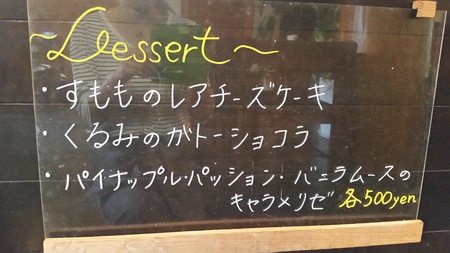 ~Dessert~
・すもものレアチーズケーキ
・くるみのガトーショコラ
・パイナップル・パッション・バニラムースの
キャラメリゼ 各500yen